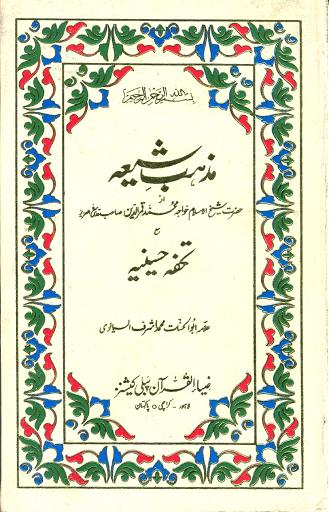 بسم الله الرحمن الرحيم
مذہب شیعہ
از
حضرت شیخ الاسلام خواجہ محمد قمرالدین صاحب
مع
تحفہ حسینیہ
علامہ ابوالحسنات محمد اشرف السیالوی
ضیاءالقرآن پبلی کیشنز
لاہور - کراچی ○ پاکستان